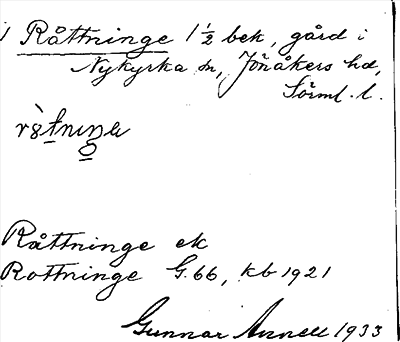 Råttninge 1 ½ bek, gård i
Nykyrka sn, Jönåkers hd,
Sörml. l.
Råttninge ek
Rottninge G. 66, kb 1921
Gunnar Annell 1933